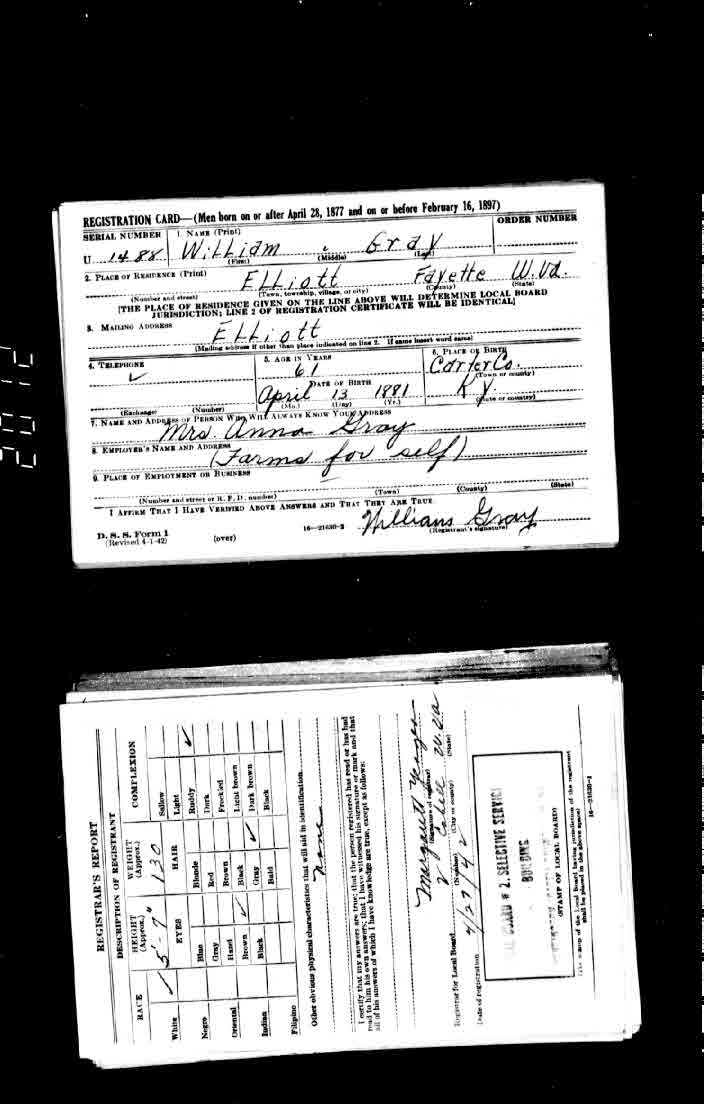 REGISTRATION CARD—(Men born on or after April 28, 1877 and on or before February 16, 1897)
SERIAL NUMBER 1. NAME (Print) ORDER NUMBER
U 1488 WiLLiam Gray
(First) (Middle) (Last)
2. PLACE OF RESIDENCE (Print)
ELLiott Fayette W.Va.
(Number and street) (Town, township, village, or city) (County) (State)
[THE PLACE OF RESIDENCE GIVEN ON THE LINE ABOVE WILL DETERMINE LOCAL BOARD
JURISDICTION; LINE 2 OF REGISTRATION CERTIFICATE WILL BE IDENTICAL]
3. MAILING ADDRESS
ELLiott
[Mailing address if other than place indicated on line 2. If same insert word same]
4. TELEPHONE 5. AGE IN YEARS 6. PLACE OF BIRTH
61 Carter Co.
(Town or county)
DATE OF BIRTH
April 13 1881 Ky.
(Exchange) (Number) (Mo.) (Day) (Yr.) (State or country)
7. NAME AND ADDRESS OF PERSON WHO WILL ALWAYS KNOW YOUR ADDRESS
Mrs. Anna Gray
8. EMPLOYER'S NAME AND ADDRESS
(Farms for self)
9. PLACE OF EMPLOYMENT OR BUSINESS
(Number and street or R. F. D. number) (Town) (County) (State)
I AFFIRM THAT I HAVE VERIFIED ABOVE ANSWERS AND THAT THEY ARE TRUE.
D. S. S. Form 1 16—21630-2 William Gray
(Revised 4-1-42) (over) (Registrant's signature)
REGISTRAR'S REPORT
DESCRIPTION OF REGISTRANT
RACE HEIGHT (Approx.) WEIGHT (Approx.) COMPLEXION
5'-7" 130
White EYES HAIR Sallow
Light
Negro Blue Blonde Ruddy
Gray Red Dark
Oriental Hazel Brown Freckled
Brown Black Light brown
Indian Black Gray Dark brown
Bald Black
Filipino
Other obvious physical characteristics that will aid in identification
None
I certify that my answers are true; that the person registered has read or has had
read to him his own answers; that I have witnessed his signature or mark and that
all of his answers of which I have knowledge are true, except as follows:
Margarett
(Signature of registrar)
Registrar for Local Board 2 Cabell W. Va
(Number) (City or county) (State)
Date of registration 4/27/42
BOARD # 2, SELECTIVE SERVICE
BUILDING
(STAMP OF LOCAL BOARD)
(The stamp of the Local Board having jurisdiction of the registrant
shall be placed in the above space)
16—21630-1